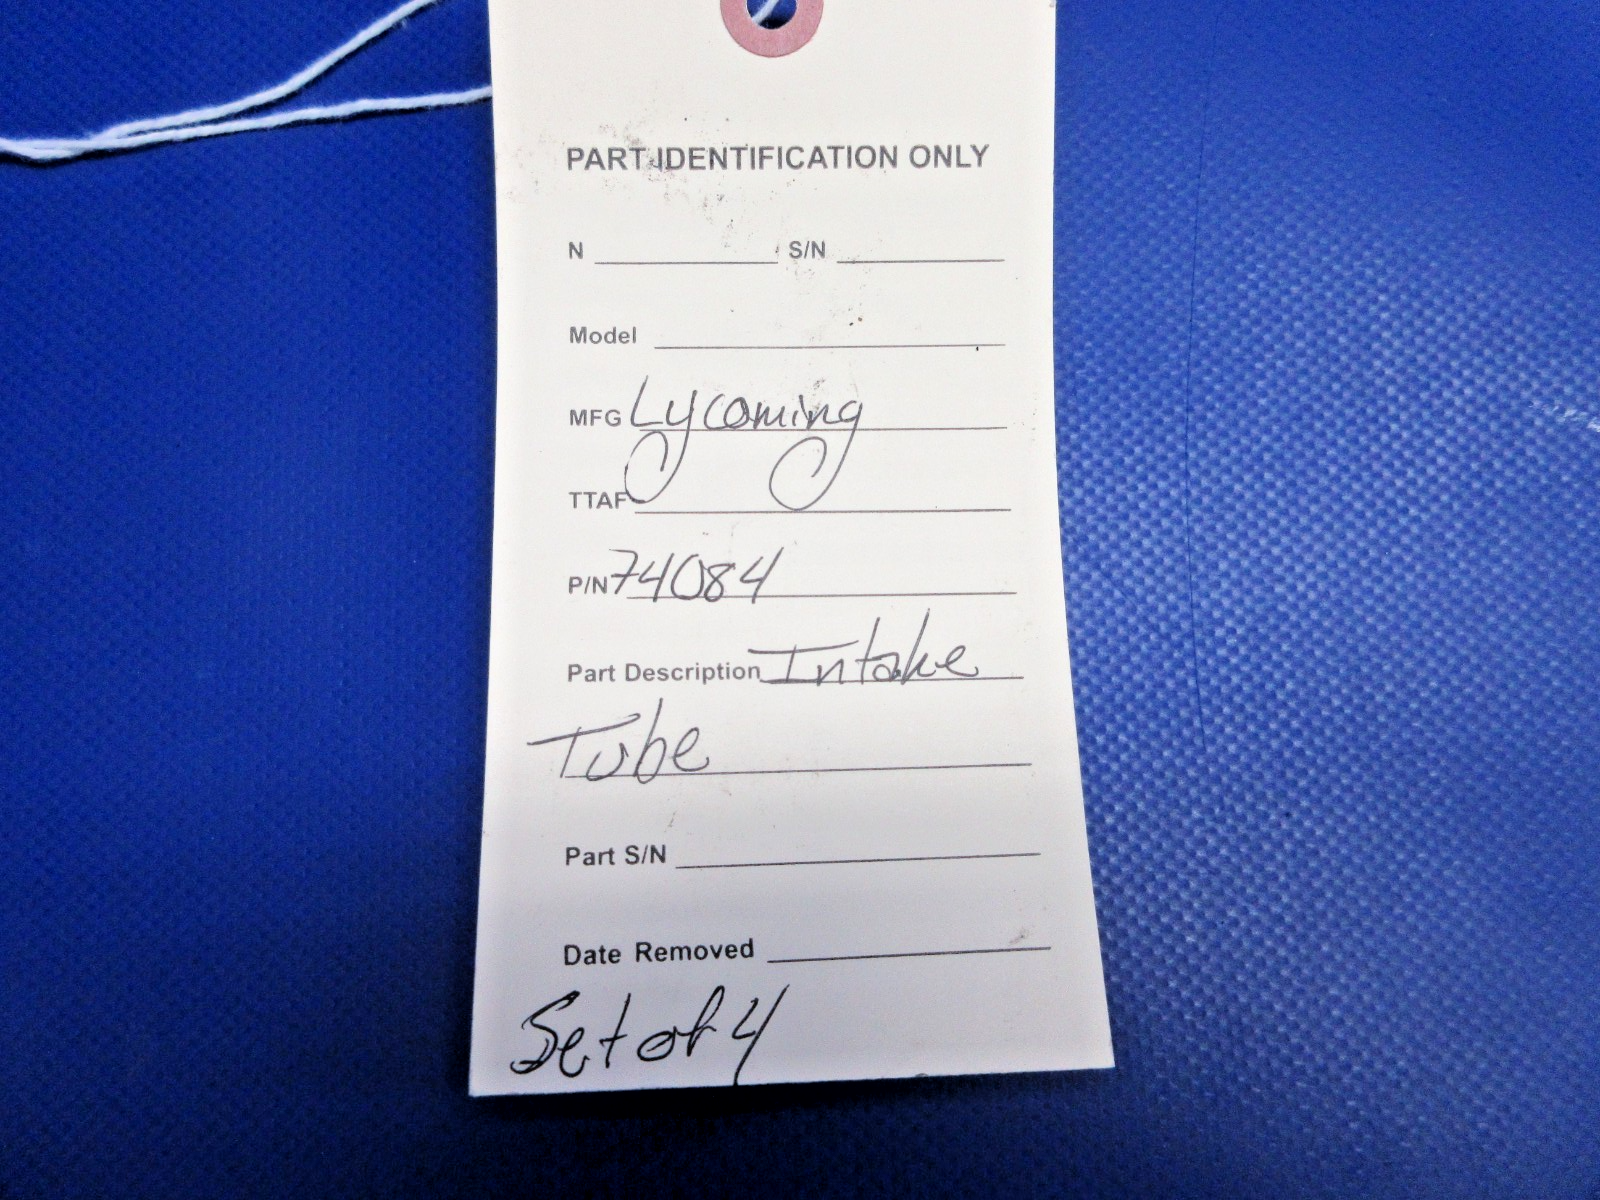 PART IDENTIFICATION ONLY
N S/N
Model
MFG Lycoming
TTAF
P/N 74084
Part Description Intake
Tube
Part S/N
Date Removed
Set of 4